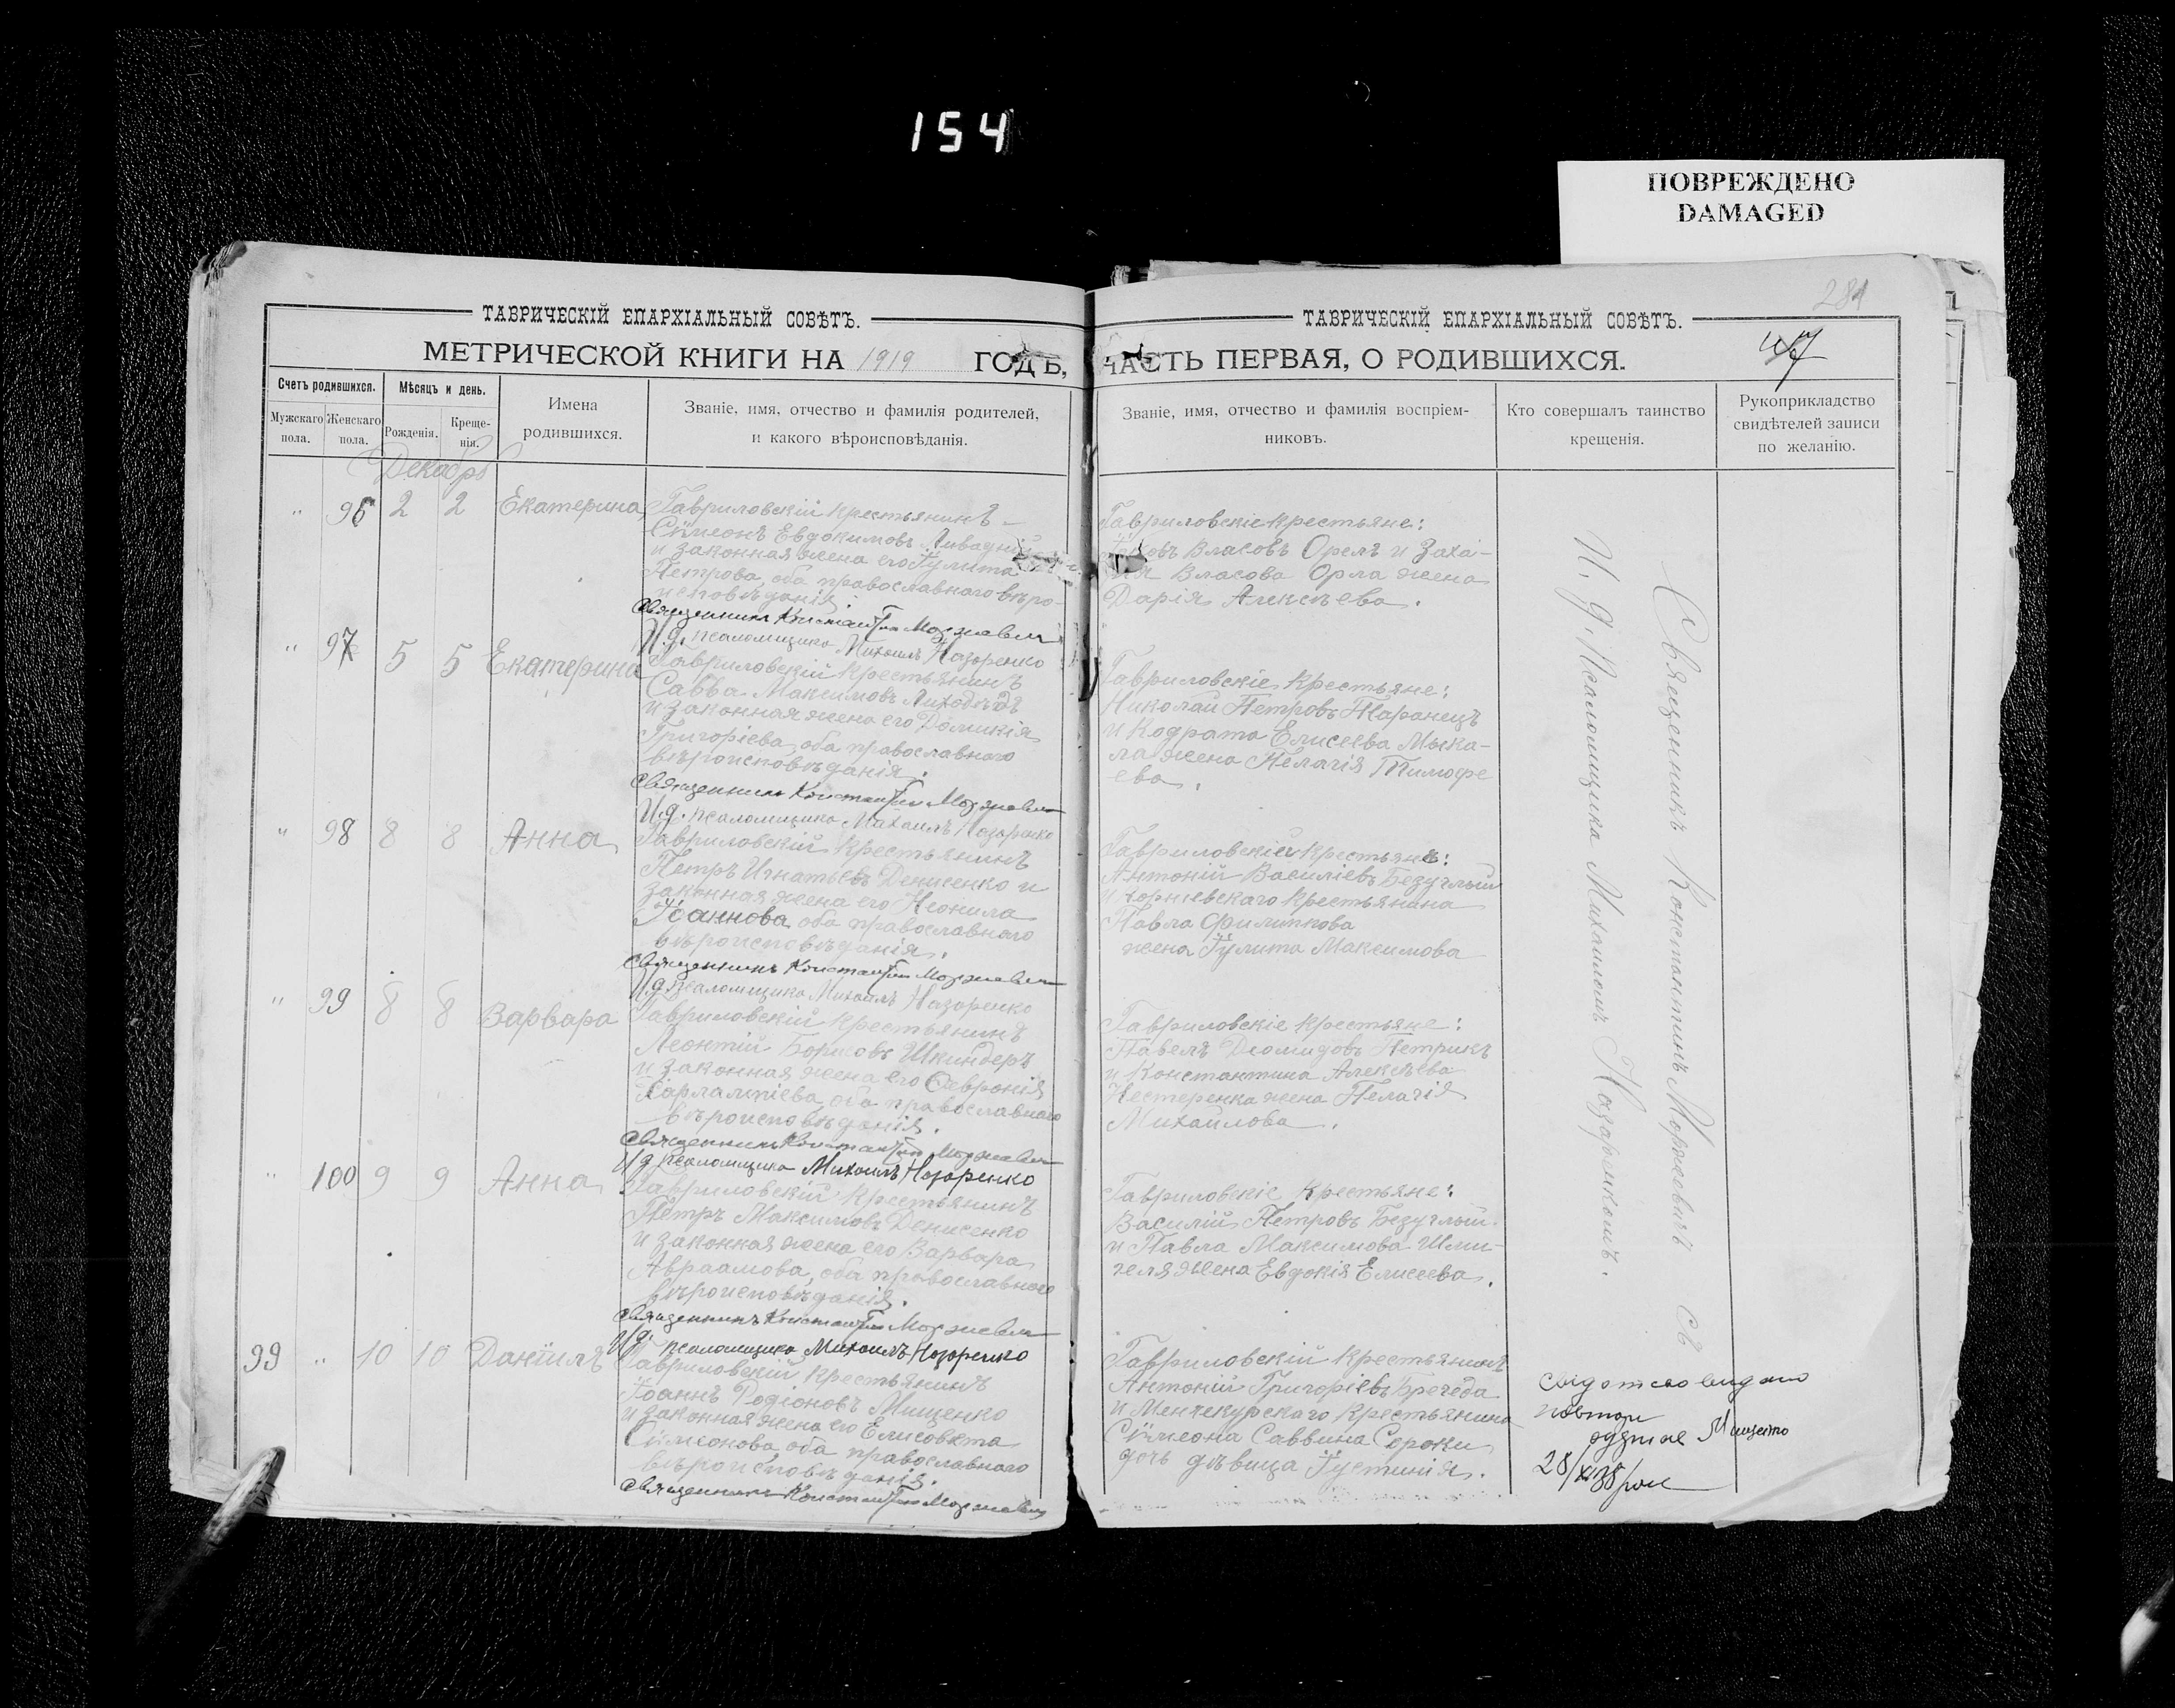 154
ПОВРЕЖДЕНО
DAMAGED
281
47
ТАВРИЧЕСКІЙ ЕПАРХІАЛЬНЫЙ СОВѢТЪ.
МЕТРИЧЕСКОЙ КНИГИ НА 1919 ГОДЪ,
Счетъ родившихся.
Мѣсяцъ и день.
Имена
родившихся.
Званіе, имя, отчество и фамилія родителей,
и какого вѣроисповѣданія.
Мужскаго
пола.
Женскаго
пола.
Рожденія.
Креще-
нія.
Декабрь
" 96 2 2 Екатерина
Гавриловскій крестьянинъ
Сѵмеонъ Евдокимовъ Ливадній
и законная жена его Іулита
Петрова, оба православнаго вѣро-
исповѣданія.
Священникъ Константин Моржевич
И.д. псаломщика Михаилъ Назаренко
" 97 5 5 Екатерина
Гавриловскій крестьянинъ
Савва Максимовъ Лиходѣдъ
и законная жена его Домникія
Григоріева, оба православнаго
вѣроисповѣданія.
Священникъ Константин Моржевич
И.д. псаломщика Михаилъ Назаренко
" 98 8 8 Анна
Гавриловскій крестьянинъ
Петръ Игнатьевъ Денисенко и
законная жена его Неонила
Іоаннова, оба православнаго
вѣроисповѣданія.
Священникъ Константин Моржевич
И.д. псаломщика Михаилъ Назаренко
" 99 8 8 Варвара
Гавриловскій крестьянинъ
Леонтій Борисовъ Шкиндеръ
и законная жена его Февронія
Харлампіева, оба православнаго
вѣроисповѣданія.
Священникъ Константин Моржевич
И.д. псаломщика Михаилъ Назаренко
" 100 9 9 Анна
Гавриловскій крестьянинъ
Петръ Максимовъ Денисенко
и законная жена его Варвара
Авраамова, оба православнаго
вѣроисповѣданія.
Священникъ Константин Моржевич
И.д. псаломщика Михаилъ Назаренко
99 " 10 10 Даніилъ
Гавриловскій крестьянинъ
Іоаннъ Родіоновъ Мищенко
и законная жена его Елисавета
Сѵмеонова, оба православнаго
вѣроисповѣданія.
Священникъ Константин Моржевич
ТАВРИЧЕСКІЙ ЕПАРХІАЛЬНЫЙ СОВѢТЪ.
ЧАСТЬ ПЕРВАЯ, О РОДИВШИХСЯ.
Званіе, имя, отчество и фамилія воспріем-
никовъ.
Кто совершалъ таинство
крещенія.
Рукоприкладство
свидѣтелей записи
по желанію.
Гавриловскіе крестьяне:
Власовъ Орелъ и Заха-
Власова Орла жена
Дарія Алексѣева.
Гавриловскіе крестьяне:
Николай Петровъ Таранецъ
и Кодрата Елисеева Мыка-
ла жена Пелагія Тимофе
ева.
Гавриловскіе крестьяне:
Антоній Василіевъ Безуглый
и крестьянина
Павла Филиппова
жена Іулита Максимова
Гавриловскіе крестьяне:
Павелъ Діомидовъ Петрикъ
и Константина Алексѣева
Нестеренка жена Пелагія
Михайлова.
Гавриловскіе крестьяне:
Василій Петровъ Безуглый
и Павла Максимова Шли-
геля жена Евдокія Елисеева.
Гавриловскій крестьянинъ
Антоній Григоріевъ
и Менчекурскаго крестьянина
Сѵмеона Саввина Сороки
дочь дѣвица Іустинія.
Священникъ Константинъ Моржевичъ съ
И. д. Псаломщика Михаиломъ Назаренкомъ.
видано
Мищенко